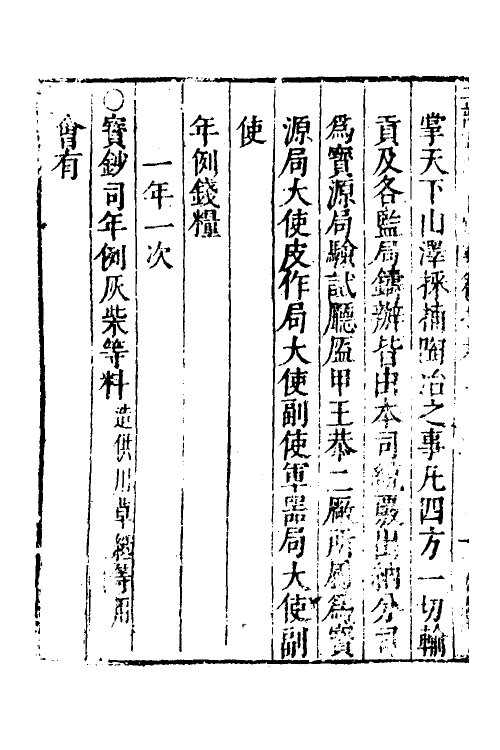 掌天下山澤採捕陶冶之事凡四方一切輸
貢及各監局鑄辦皆由本司
出納分司
爲寶源局驗試廳盔甲王恭二廠所屬爲寶
源局大使皮作局大使副使軍器局大使副
使
年例錢糧
一年一次
○寶鈔司年例灰柴等料造供用草紙等用
會有